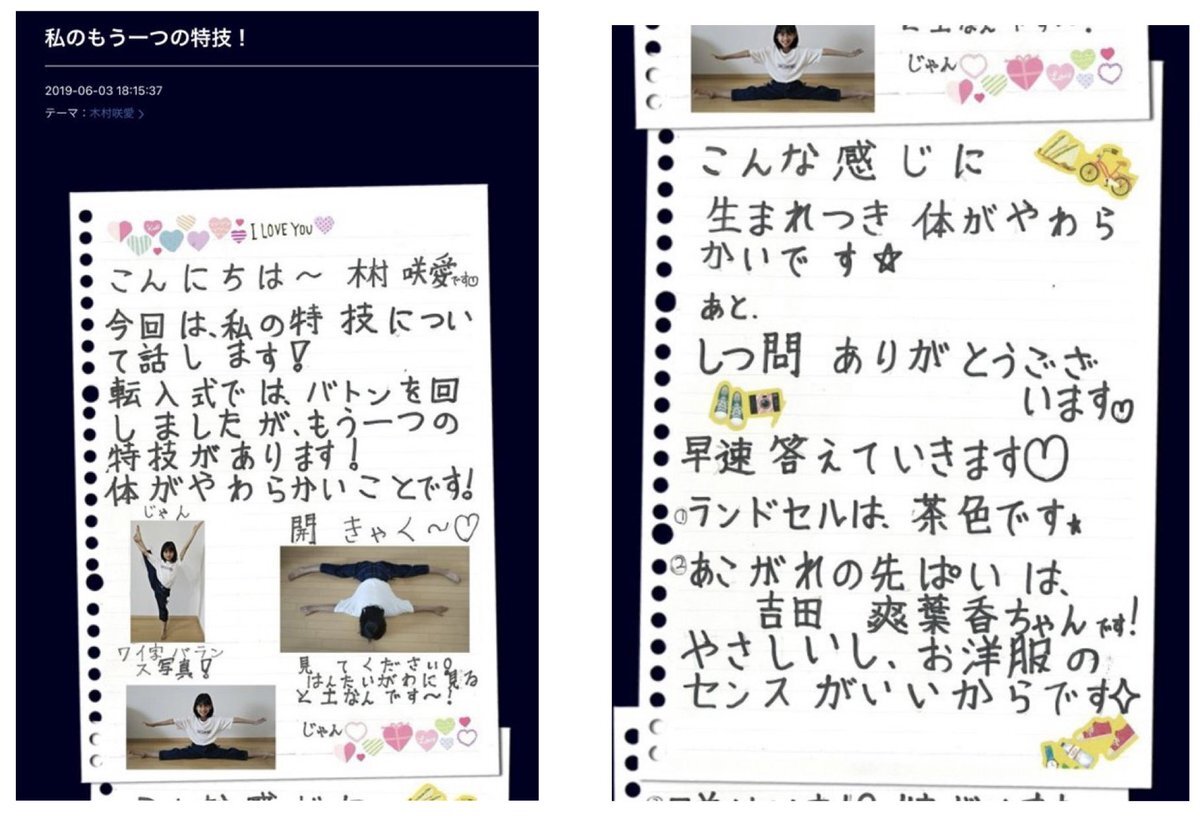 私のもう一つの特技！
2019-06-03 18:15:37
テーマ：木村咲愛 >
I LOVE YOU
こんにちは〜 木村 咲愛です
今回は、私の特技につい
て話します!
転入式では、バトンを回
しましたが、もう一つの
特技があります!
体がやわらかいことです!
じゃん
開きゃく〜♡
ワイ字バラン
ス写真!
見てください!
はんたいがわに見る
と土なんです〜!
じゃん
Love
こんな感じに
と土なんです〜!
じゃん
Love
こんな感じに
生まれつき 体がやわら
かいです☆
あと.
しつ問 ありがとうござ
います
早速答えていきます♡
①ランドセルは、茶色です★
②あこがれの先ぱいは、
吉田 爽葉香ちゃんです!
やさしいし、お洋服の
センスがいいからです☆